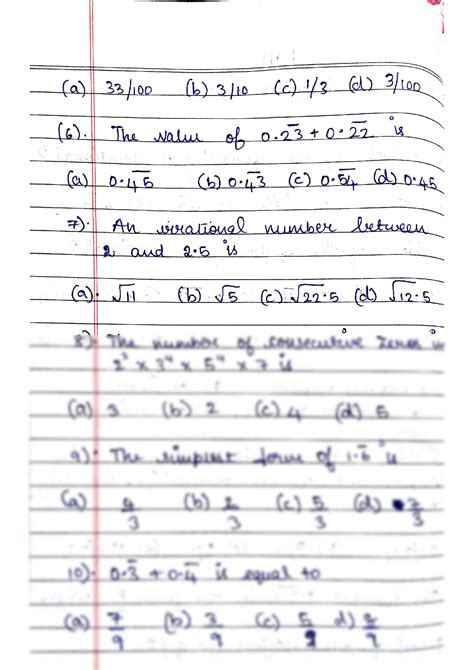 (a) 33/100 (b) 3/10 (c) 1/3 (d) 3/100
(6). The value of 0.2̅3̅ + 0.2̅2̅ is
(a) 0.4̅5̅ (b) 0.4̅3̅ (c) 0.5̅4̅ (d) 0.45
7). An irrational number between
2 and 2.5 is
(a). √11 (b) √5 (c) √22.5 (d) √12.5
8). The number of consecutive zeros in
2³ × 3⁴ × 5⁴ × 7 is
(a) 3 (b) 2 (c) 4 (d) 5
9). The simplest form of 1.6̅ is
(a) 4/3 (b) 2/3 (c) 5/3 (d) 7/3
10). 0.3̅ + 0.4̅ is equal to
(a) 7/9 (b) 3/9 (c) 5/9 d)